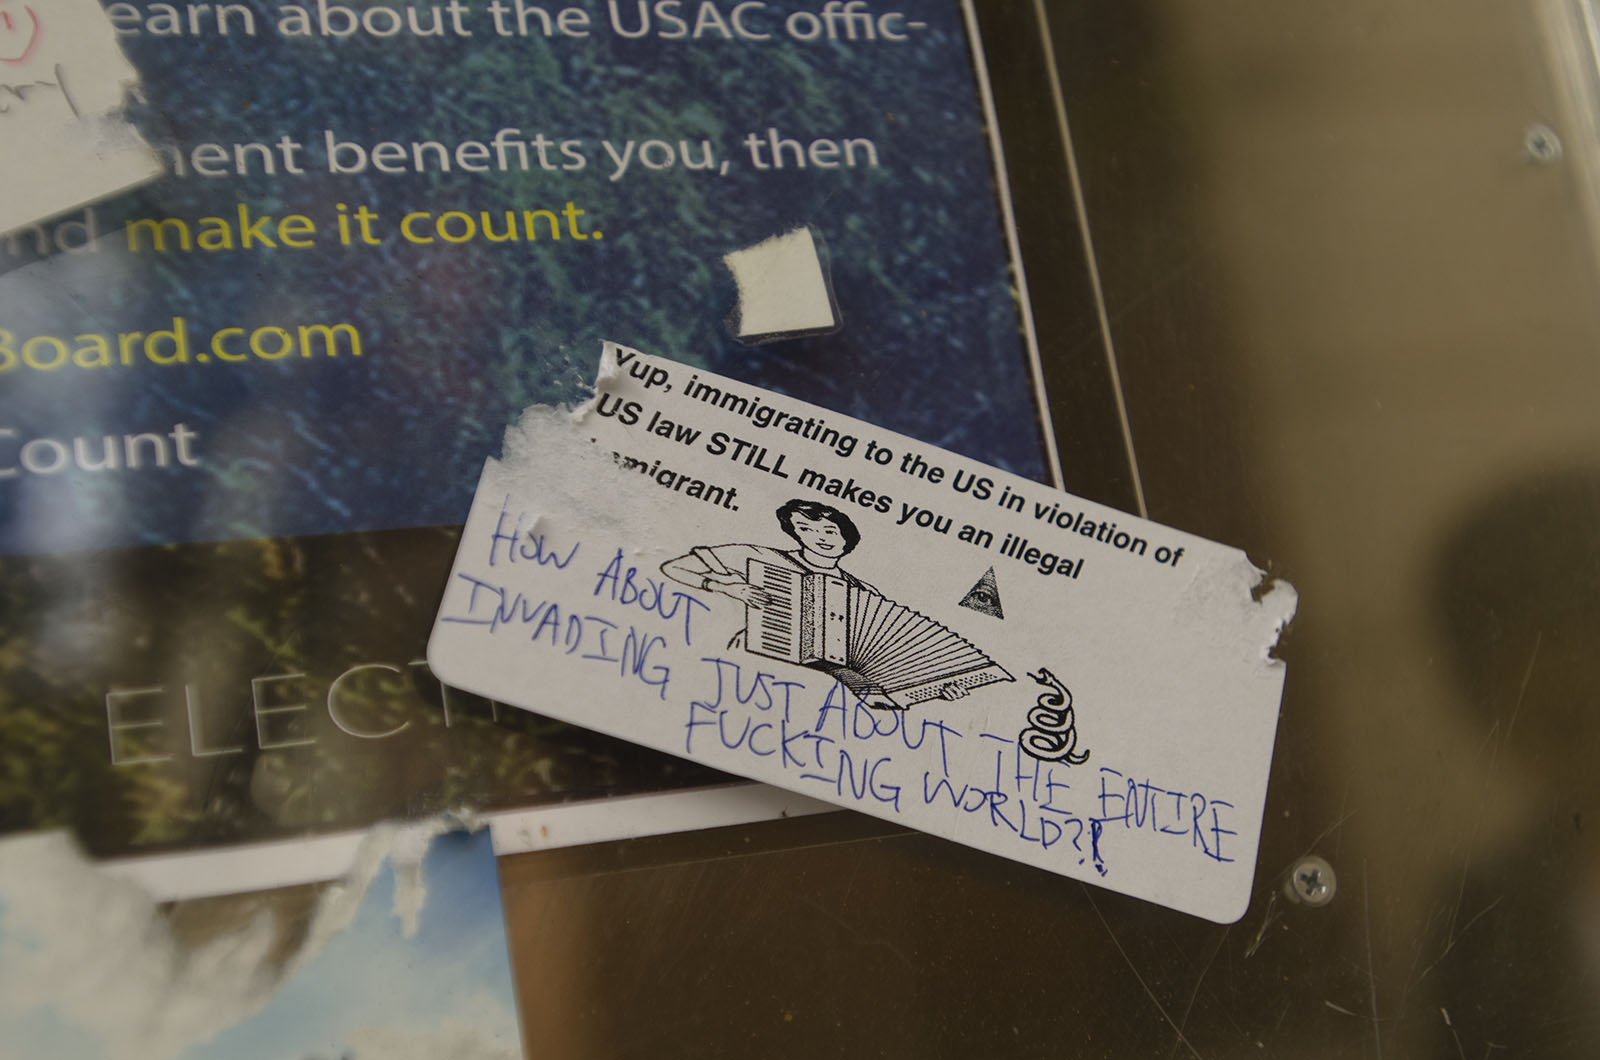 earn about the USAC offic-
ment benefits you, then
nd make it count.
Board.com
Count
ELECT
Yup, immigrating to the US in violation of
US law STILL makes you an illegal
immigrant.
HOW ABOUT
INVADING JUST ABOUT THE ENTIRE
FUCKING WORLD?!